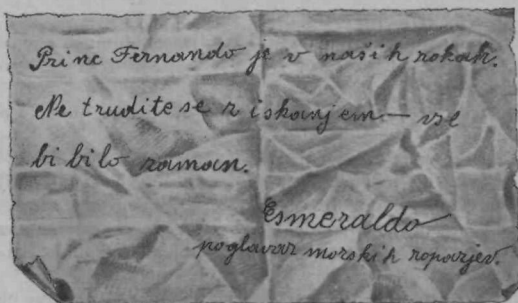 Princ Fernando je v naših rokah.
Ne trudite se z iskanjem – vse
bi bilo zaman.
Esmeraldo
poglavar morskih roparjev.